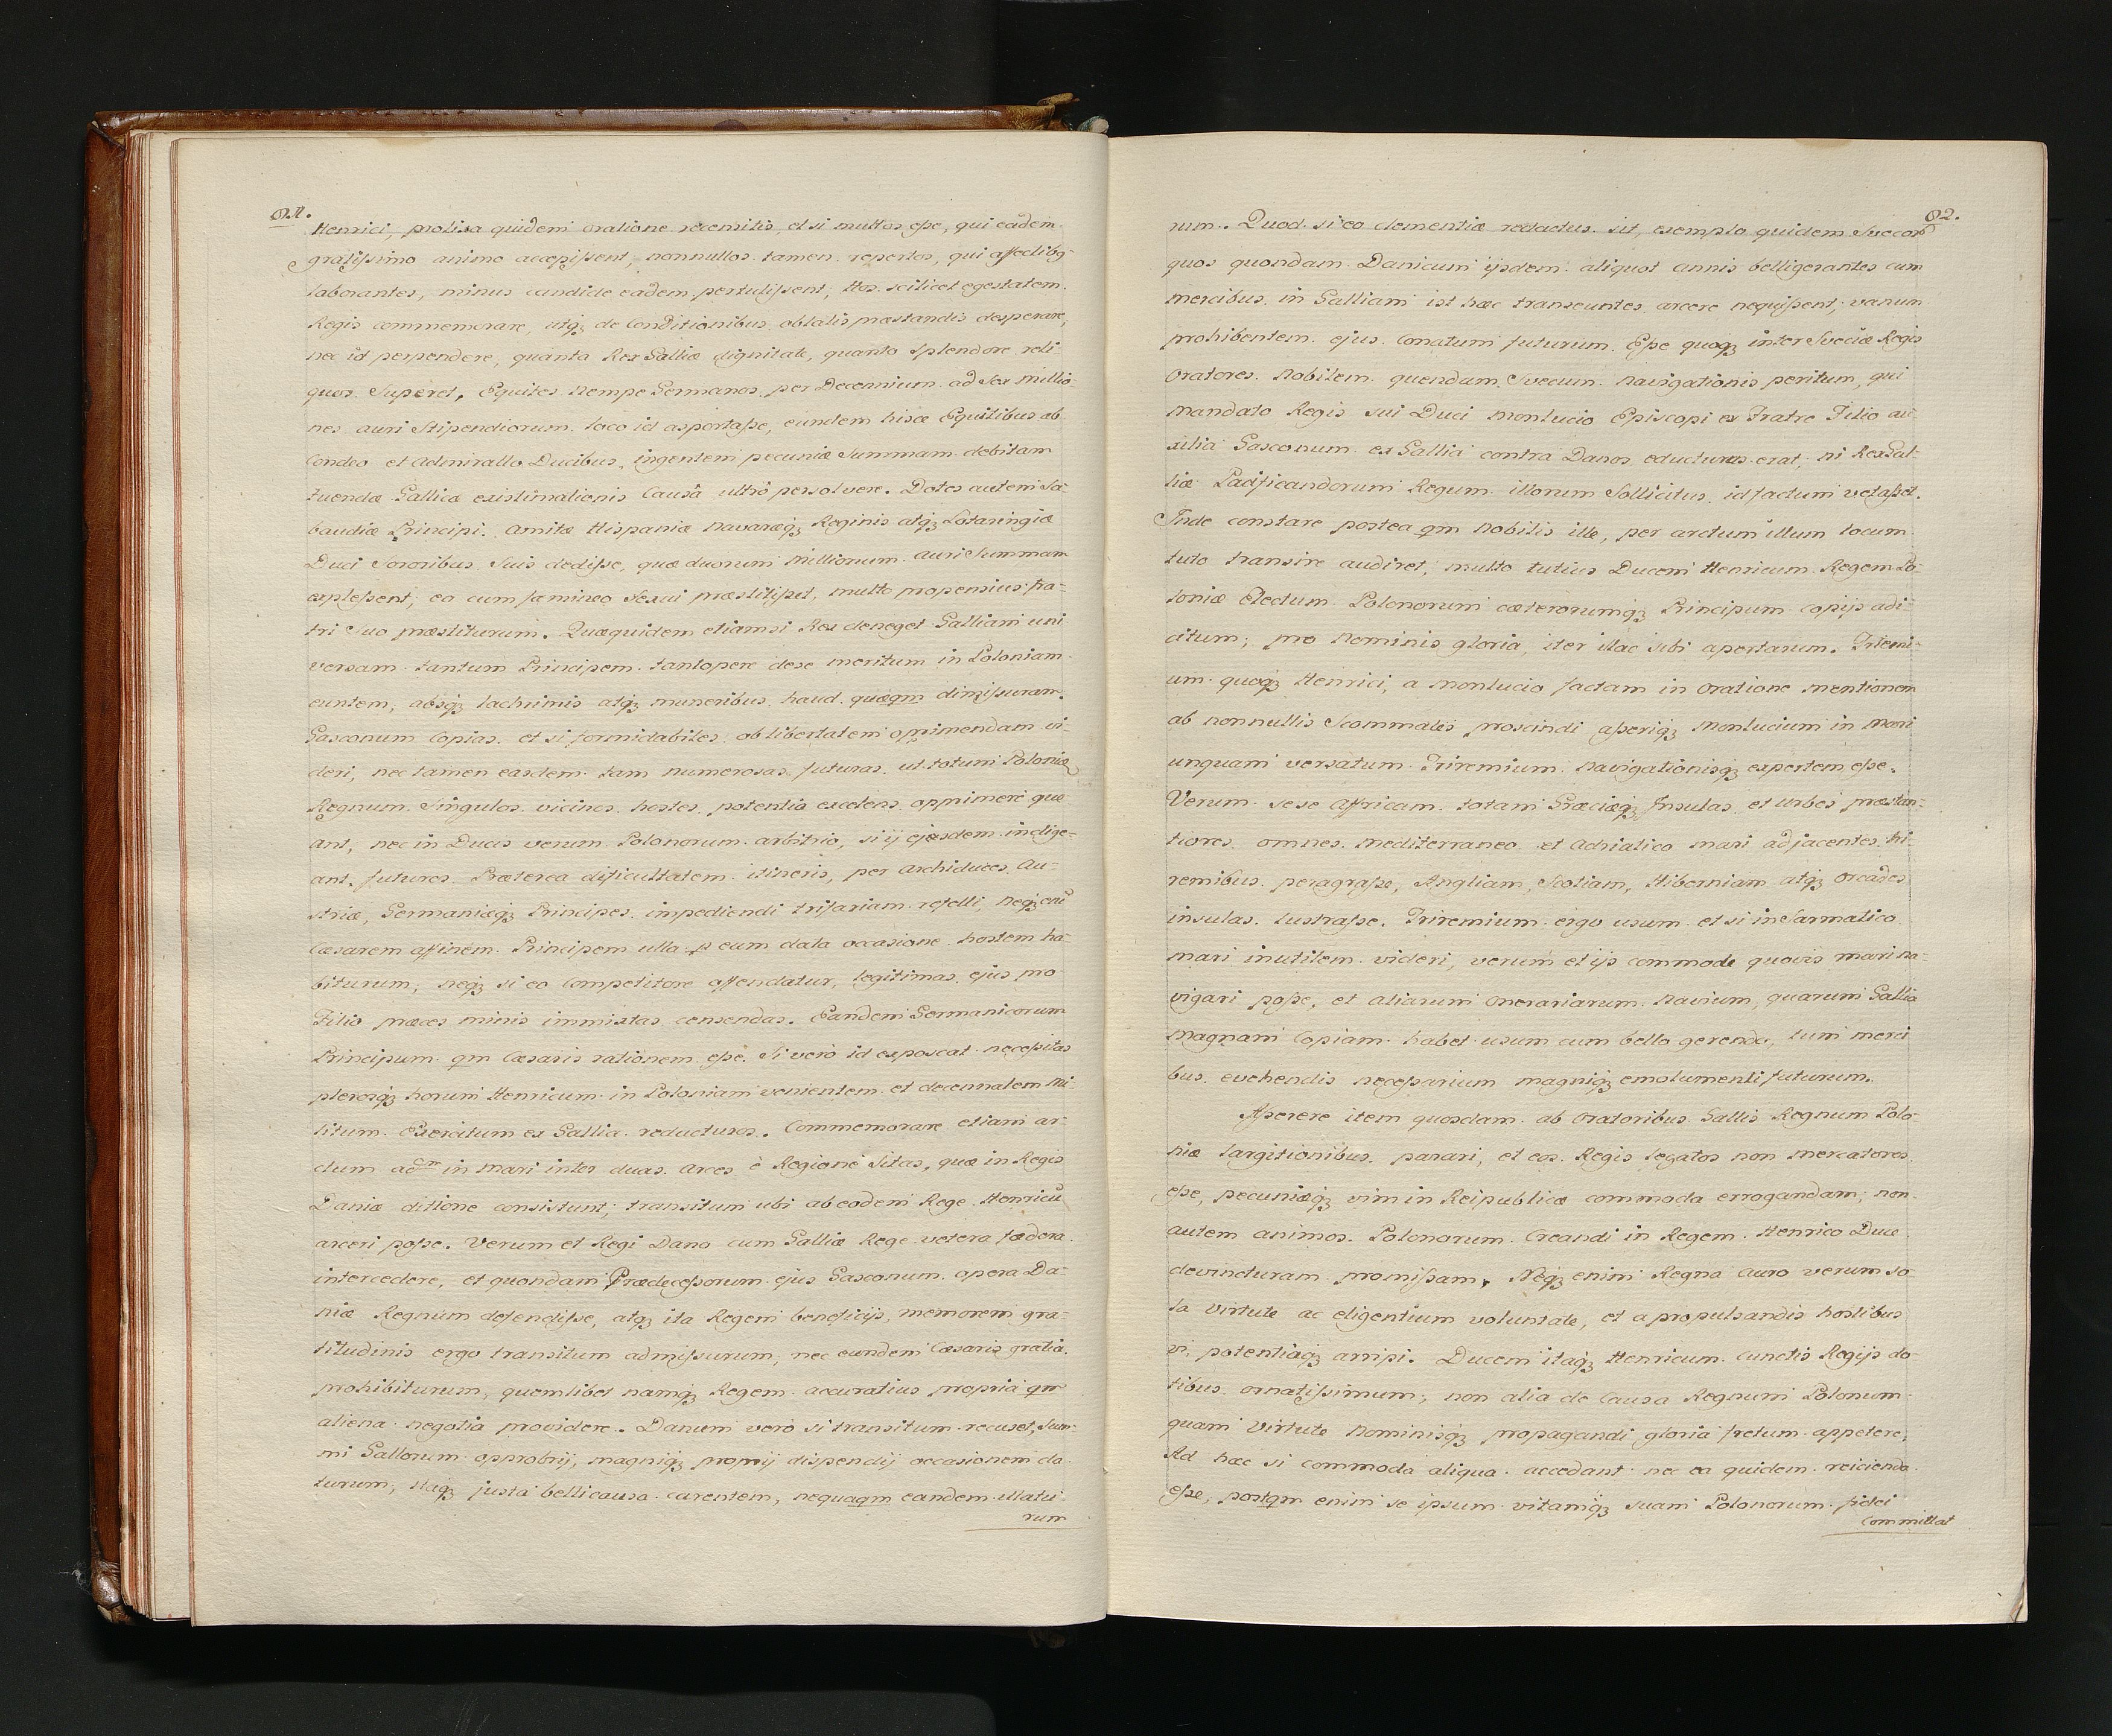 81.
Henrici, prolixa quidem oratione recensitis, et si multos eſse, qui eadem
gratiſsimo animo accepiſsent, nonnullos tamen repertos, qui affectibq
laborantes, minus candide eadem pertuliſsent; Hos scilicet egestatem
Regis commemorare, atqꝫ de Conditionibus oblatis præstandis desperare,
nec id perpendere, quanta Rex Galliæ dignitate, quanto splendore reli-
quos Superet, Equites nempe Germanos per Decennium ad Sex Millio-
nes auri Stipendiorum loco id asportaſse, eundem hisce Equitibus ab
Condeo et Admirallo Ducibus, ingentem pecuniæ Summam debitam
tuendæ Gallicæ existimationis Causâ ultrò persolvere. Dotes autem Sa-
baudiæ Principi. Amitæ Hispaniæ Navaræqꝫ Reginis atqꝫ Lotaringiæ
Duci Sororibus Suis dediſse, quæ duorum Millionum auri Summam
expleſsent; ea cum fæmineo Sexui præstitiſset, multo propensius fra-
tri Suo præstiturum. Quæquidem etiamsi Rex deneget Galliam uni
versam tantum Principem tantopere dese meritum in Poloniam
euntem, absqꝫ lachrimis atqꝫ muneribus haud quaqm dimiſsuram.
Gasconum Copias et si formidabiles ob libertatem opprimendam vi-
deri, nec tamen easdem tam numerosas futuras ut totum Poloniæ
Regnum Singulos vicinos hostes potentia excelens opprimere que
ant, nec in Ducis verum Polonorum arbitrio, si ij ejusdem indige-
ant, futuros Præterea dificultatem itineris, per Archiduces Au-
striæ, Germaniæqꝫ Principes impediendi trifariam refelli, neqꝫ enĩ
Cæsarem affinem Principem ulla p eum data occasione hostem ha-
biturum, neqꝫ si eo Competitore offendatur, legitimas ejus pro
Filio præces minis immixtas censendas. Eandem Germanicorum
Principum qm Cæsaris rationem eſse. Si verò id exposcat neceſsitas
plerosqꝫ horum Henricum in Poloniam venientem et decennalem Mi-
litum Exercitum ex Gallia reducturos. Commemorare etiam ar-
ctum adm in Mari inter duas Arces è Regione Sitas, quæ in Regis
Daniæ ditione consistunt; transitum ubi ab eodem Rege Henricũ
arceri poſse. Verum et Regi Dano cum Galliæ Rege vetera fædera
intercedere, et quondam Prædeceſsorum ejus Gasconum opera Da-
niæ Regnum defendiſse, atqꝫ ita Regem beneficijs, memorem gra-
titudinis ergo transitum admiſsurum, nec eundem Cæsaris gratia
prohibiturum, quemlibet namqꝫ Regem accuratius propria qm
aliena negotia providere. Danum verò si transitum recuset, Sum-
mi Gallorum opprobrij, magniqꝫ proprij dispendij occasionem da
turum, itaqꝫ justa belli causa carentem, nequaqm eandem illatu-
rum
82.
rum. Quod si eo dementiæ redactus sit, exemplo quidem Svecor
quos quondam Danicum ijsdem aliquot annis belligerantes cum
mercibus in Galliam ist hæc transeuntes arcere nequiſsent; vanum
prohibentem ejus Conatum futurum. Eſse quoqꝫ inter Sveciæ Regis
Oratores Nobilem quendam Svecum navigationis peritum, qui
Mandato Regis sui Duci Monlucio Episcopi ex Fratre Filio au-
xilia Gasconum ex Gallia contra Danos educturus erat; ni Rex Gal-
liæ Padificandorum Regum illorum Sollicitus id factum vetaſset.
Inde constare postea qm Nobilis ille, per arctum illum locum
tuto transire audiret, multo tutius Ducem Henricum Regem Po-
loniæ Electum Polonorum cæterorumqꝫ Principum Copijs adi-
citum; pro Nominis gloria, iter illac sibi apertarum. Triremi-
um quoqꝫ Henrici, a Monlucio factam in Oratione mentionem
ab nonnullis Scommatis proscindi aſseriqꝫ Monlucium in Mari
unquam versatum Triremium navigationisqꝫ expertem eſse.
Verum sese Affricam totam Græciæqꝫ Insulas et Urbes præstan-
tiores omnes Mediterraneo et Adriatico mari adjacentes tri-
remibus peragraſse, Angliam, Scotiam, Hiberniam atqꝫ Orcades
insulas lustraſse. Triremium ergo usum et si in Sarmatico
mari inutilem videri, verum et ijs commode quovis mari na-
vigari poſse, et aliarum Onerariarum Navium, quarum Gallia
Magnam Copiam habet usum cum bello gerendo, tum merci
bus evehendis neceſsarium magniqꝫ emolumenti futurum.
Aſserere item quosdam ab Oratoribus Gallis Regnum Polo-
niæ largitionibus parari, et eos Regis legatos non mercatores
eſse, pecuniæqꝫ vim in Reipublicæ commoda errogandam; non
autem animos Polonorum Creandi in Regem Henrico Duce
devincturam promiſsam, Neqꝫ enim Regna auro verum so-
la Virtute ac eligentium voluntate, et a propulsandis hostibus
vi, potentiaqꝫ arripi. Ducem itaqꝫ Henricum Cunctis Regijs do-
tibus ornatiſsimum; non alia de Causa Regnum Polonum
quam Virtute Nominisqꝫ propagandi gloria fretum appetere,
Ad hæc si commoda aliqua accedant nec ea quidem reicienda
eſse, postqm enim se ipsum vitamqꝫ suam Polonorum fidei
Committat